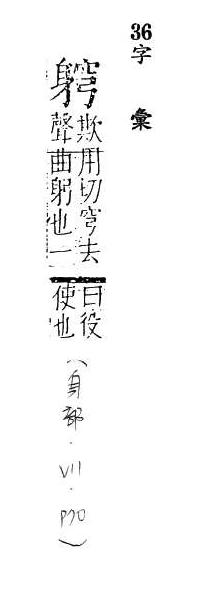 36字彙
欺用切穹去
聲曲躬也一
曰役
使也
(身部・VII・P70)